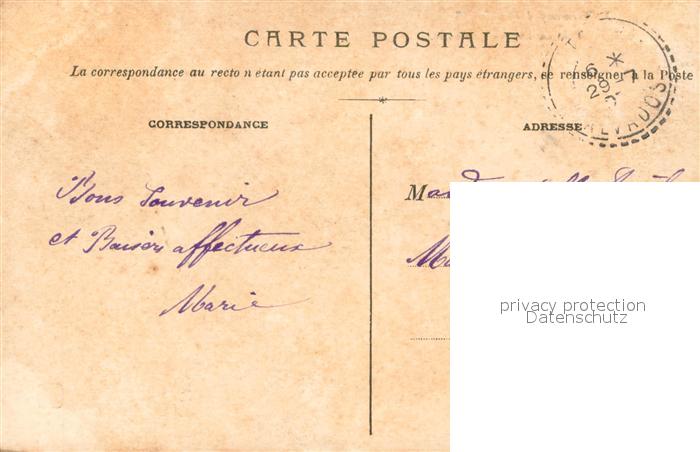 CARTE POSTALE
La correspondance au recto n étant pas acceptée par tous les pays étrangers, se renseigner à la Poste
CORRESPONDANCE
ADRESSE
Bons Souvenir
et Baisers affectueux
Marie
privacy protection
Datenschutz